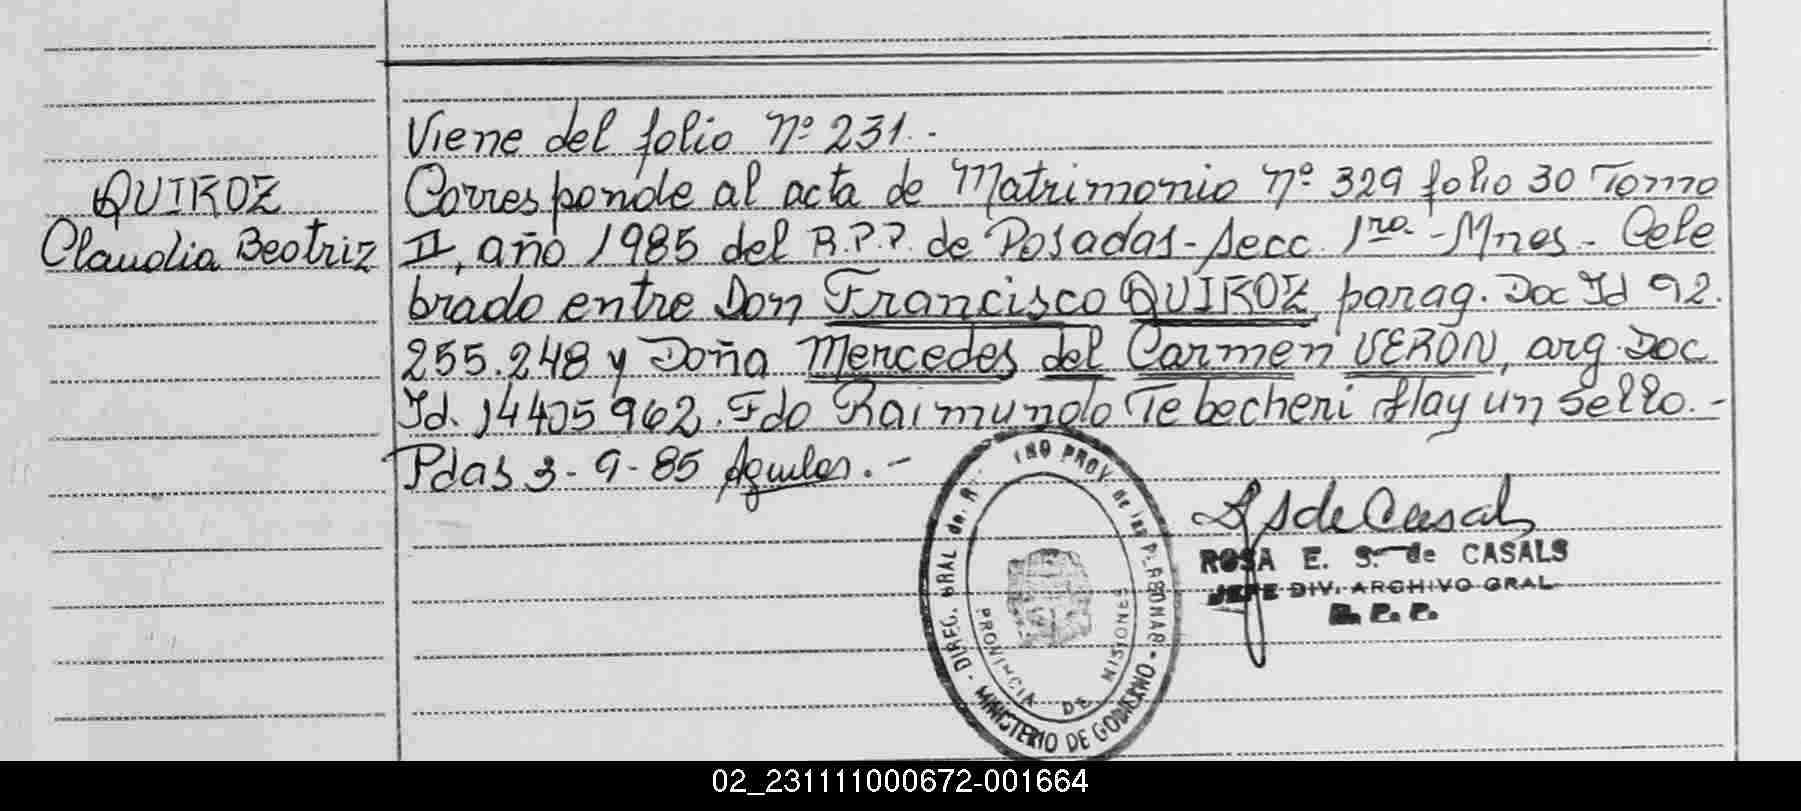 Viene del folio Nº 231.-
QUIROZ
Claudia Beatriz
Corresponde al acta de Matrimonio Nº 329 folio 30 Tomo
II, año 1985 del R.P.P. de Posadas - Secc. 1ra - Mnes - Cele
brado entre Don Francisco QUIROZ, parag. Doc Id 92.
255.248 y Doña Mercedes del Carmen VERON, arg. Doc
Id. 14405962. Fdo Raimundo Tebecheri Hay un Sello.-
Pdas 3-9-85
ROSA E. S. de CASALS
JEFE DIV. ARCHIVO GRAL
R. P. P.
DIREC. GRAL de. R. PROV de las PERSONAS
PROVINCIA DE MISIONES
MINISTERIO DE GOBIERNO
02_231111000672-001664